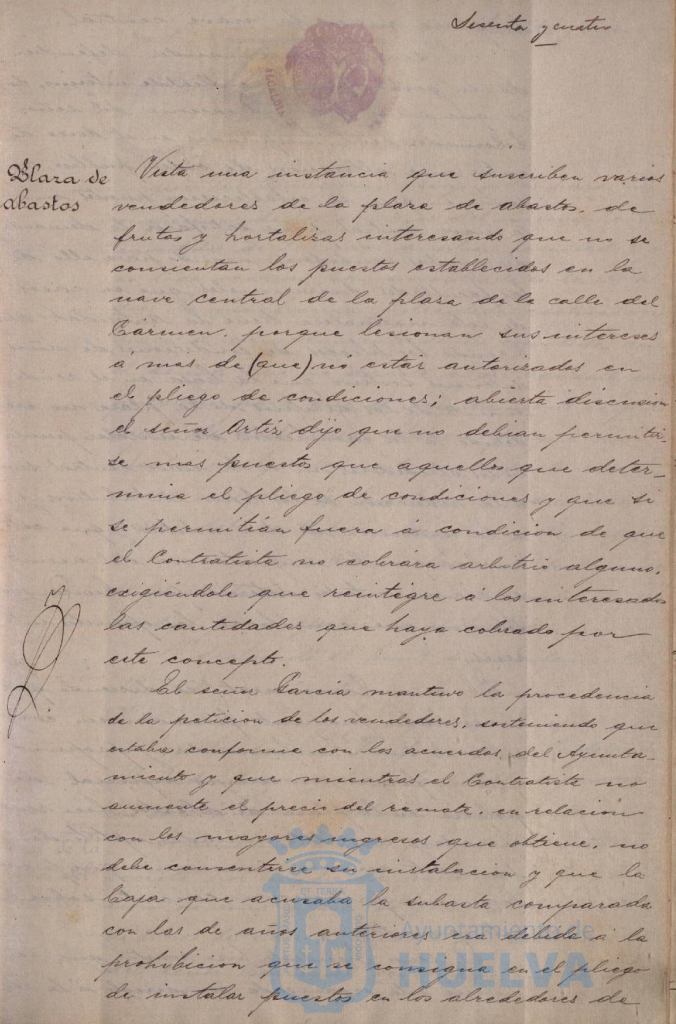 Sesenta y cuatro
Plaza de
abastos
Vista una instancia que suscriben varios
vendedores de la plaza de abastos, de
frutas y hortalizas interesando que no se
consientan los puestos establecidos en la
nave central de la plaza de la calle del
Cármen, porque lesionan sus intereses
á mas de (que) nó estar autorizados en
el pliego de condiciones; abierta discusion
el señor Ortiz dijo que no debian permitir-
se mas puestos que aquellos que deter-
mina el pliego de condiciones y que si
se permitián fuera á condicion de que
el Contratista no cobrára arbitrio alguno,
exigiéndole que reintegre á los interesados
las cantidades que haya cobrado por
este concepto.
El señor García mantuvo la procedencia
de la peticion de los vendedores, sosteniendo que
estaba conforme con los acuerdos del Ayunta-
miento y que mientras el Contratista no
aumente el precio del remate, en relacion
con los mayores ingresos que obtiene, no
debe consentirse su instalacion y que la
baja que acusaba la subasta comparada
con las de años anteriores era debida á la
prohibicion que se consigna en el pliego
de instalar puestos en los alrededores de
Ayuntamiento de
HUELVA